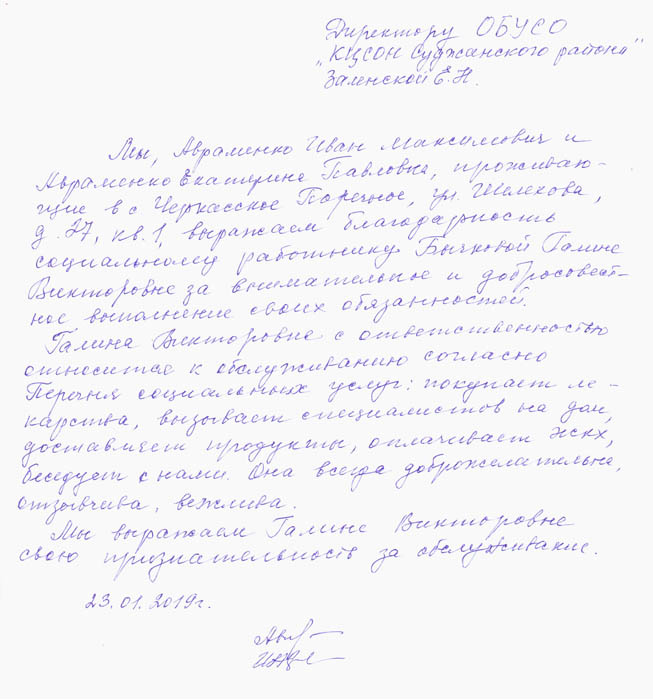 Директору ОБУСО
„КЦСОН Суджанского района"
Заленской Е.Н.
Мы, Авраменко Иван Максимович и
Авраменко Екатерина Павловна, проживаю-
щие в с Черкасское Поречное, ул. Шелехова,
д. 27, кв. 1, выражаем благодарность
социальному работнику Бычковой Галине
Викторовне за внимательное и добросовест-
ное выполнение своих обязанностей.
Галина Викторовне с ответственностью
относится к обслуживанию согласно
Перечня социальных услуг: покупает ле-
карства, вызывает специалистов на дом,
доставляет продукты, оплачивает ЖКХ,
беседует с нами. Она всегда доброжелательна,
отзывчива, вежлива.
Мы выражаем Галине Викторовне
свою признательность за обслуживание.
23.01.2019г.